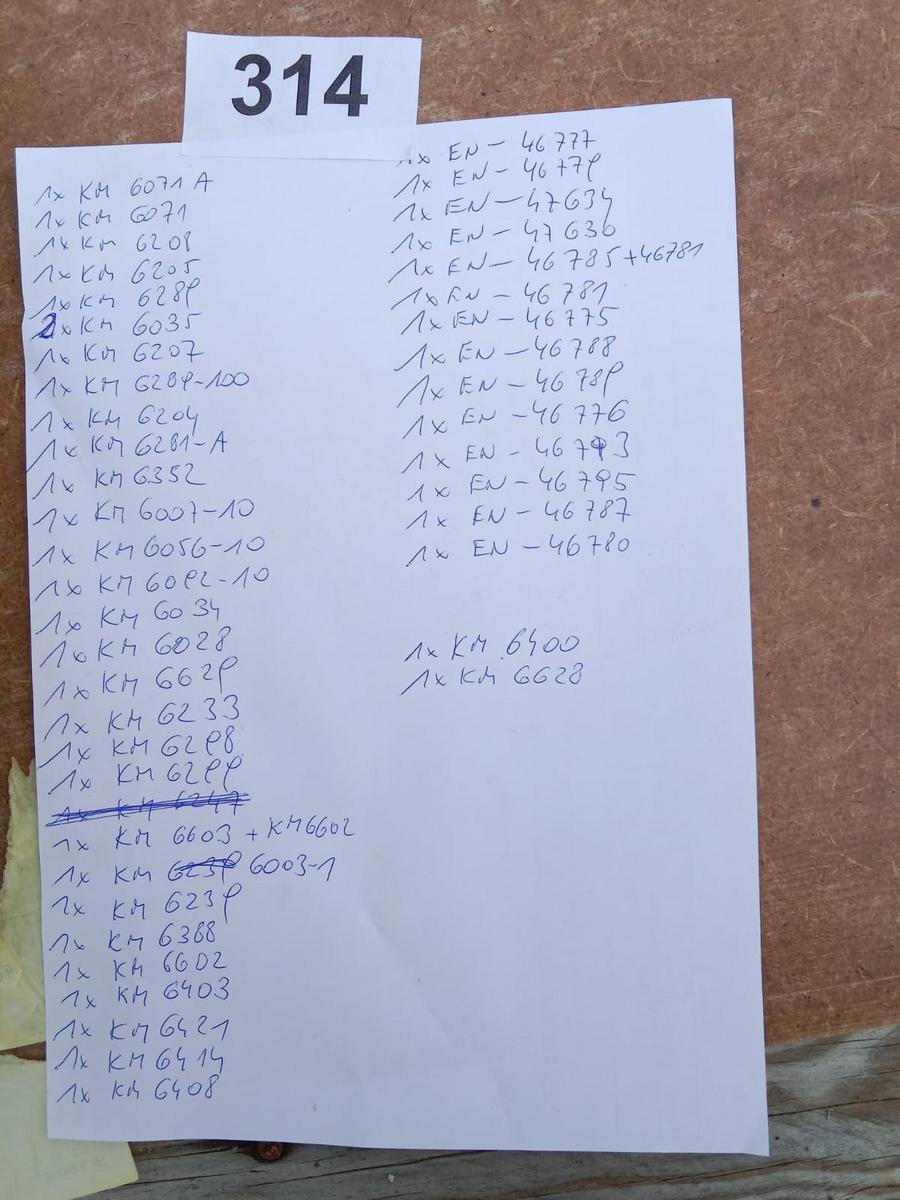 314
1x KM 6071 A
1x KM 6071
1x KM 6208
1x KM 6205
1x KM 6289
2x KM 6035
1x KM 6207
1x KM 6289-100
1x KM 6204
1x KM 6281-A
1x KM 6352
1x KM 6007-10
1x KM 6056-10
1x KM 6092-10
1x KM 6034
1x KM 6028
1x KM 6629
1x KM 6233
1x KM 6298
1x KM 6299
1x KM 6247
1x KM 6603 + KM6602
1x KM 6239 6003-1
1x KM 6239
1x KM 6388
1x KM 6602
1x KM 6403
1x KM 6421
1x KM 6414
1x KM 6408
1x EN - 46777
1x EN - 46779
1x EN - 47634
1x EN - 47636
1x EN - 46785+46781
1x EN - 46781
1x EN - 46775
1x EN - 46788
1x EN - 46789
1x EN - 46776
1x EN - 46793
1x EN - 46795
1x EN - 46787
1x EN - 46780
1x KM 6400
1x KM 6628